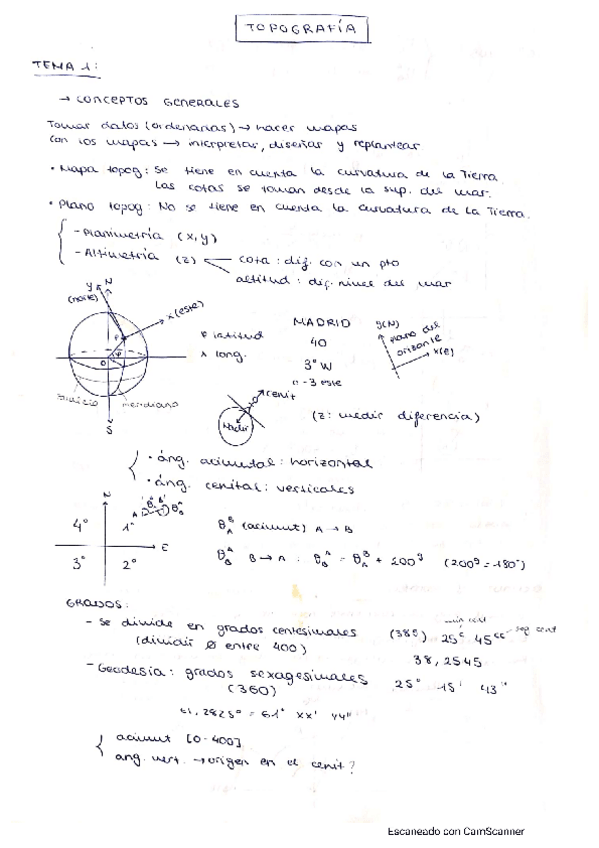 TOPOGRAFÍA
TEMA 1:
→ CONCEPTOS GENERALES
Tomar datos (ordenarlas) → hacer mapas
Con los mapas → interpretar, diseñar y replantear
• Mapa topog: Se tiene en cuenta la curvatura de la Tierra
Las cotas se toman desde la sup. del mar.
• Plano topog: No se tiene en cuenta la curvatura de la Tierra.
- Planimetría (x,y)
- Altimetría (z)
cota: dif. con un pto
altitud: dif. nivel del mar
y N
(norte)
x (este)
P
O
S
meridiano
φ latitud
λ long.
MADRID
40
3° W
-3 este
y(N)
plano del
horizonte
x(E)
cenit
Nadir
(z: medir diferencia)
• áng. acimutal: horizontal
• áng. cenital: verticales
N
E
4° 1°
3° 2°
θ_A^B (acimut) A → B
θ_B^A B → A : θ_B^A = θ_A^B + 200^g (200^g = 180°)
GRADOS:
- Se divide en grados centesimales
(dividir Ø entre 400)
(38^g) 25^c 45^cc
min cent
seg cent
38,2545
- Geodesia: grados sexagesimales
(360)
25° 15' 43''
61,2825° = 61° xx' yy''
acimut [0-400]
ang. vert. → origen en el cenit?
Escaneado con CamScanner